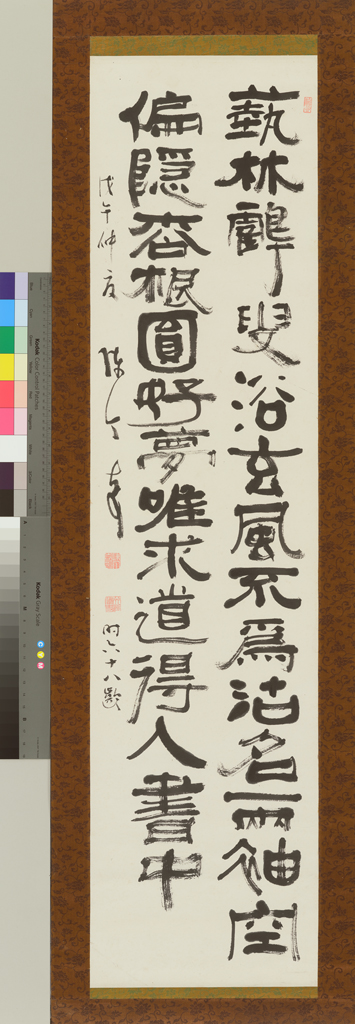 藝林鶴叟浴玄風不爲沽名兩袖空
偏隱杏根圓好夢唯求道得人書中
戊午仲夏 陳
時六十八齡
Kodak Color Control Patches
Kodak Gray Scale
C Y M